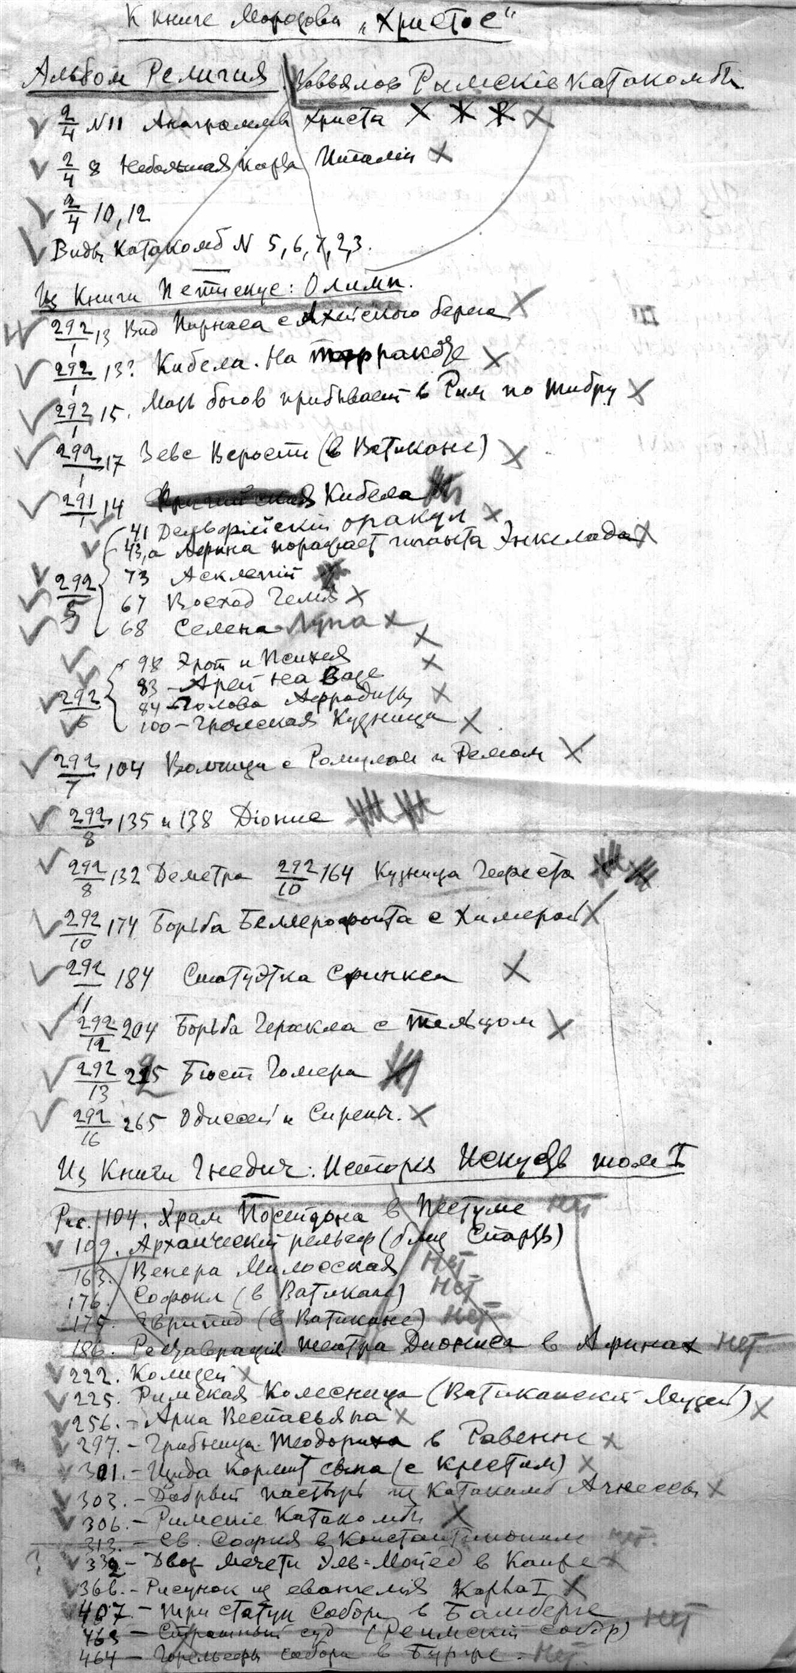 К книге Морозова „Христос"
Альбом Религия Римскіе катакомбы
2/4 N11 Анаграммы Христа
2/4 8 Небольшая
2/4 10, 12
Виды Катакомб N 5, 6, 7, 2, 3.
Из Книги Петискус: Олимп.
292/1 13 Вид Парнаса с берега
292/1 13? Кибела. На
292/1 15. Мать богов прибывает в Рим по Тибру
292/1 17 Зевс Верости (в Ватикане)
291/1 14 Кибела
41 Дельфійскій оракул
43,а Афина поражает гиганта Энкелада
73 Асклепій
292/5 67 Восход Гелия
68 Селена Луна
98 Эрот и Психея
83 - Арей на вазе
292/6 84 - Голова Афродиты
100 - Кузница
292/7 104 Волчица с Ромулом и Ремом
292/8 135 и 138 Діонис
292/8 132 Деметра 292/10 164 Кузница Гефеста
292/10 174 Борьба Беллерофонта с Химерой
292/11 184 Статуэтка Сфинкса
292/12 204 Борьба Геракла с тельцом
292/13 Бюст Гомера
292/16 265 Одиссей и Сирены.
Из Книги Гнедич: Исторія Искусств том I
Рис. 104. Храм Посейдона в Пестуме нет
109. Архаическій рельеф (близ Спарты)
163. Венера Милосская нет
176. Софокл (в Ватикане) нет
Эврипид (в Ватикане) нет
186. Реставрація театра Диониса в Афинах нет
222. Колизей
225. Римская Колесница (Ватиканскій Музей)
256. - Арка Веспасьяна
297. - Гробница Теодориха в Равенне
301. - кормит сына (с крестом)
303. - Добрый пастырь из Катакомб Агнессы
306. - Римскіе Катакомбы
313. - Св. София в Константинополе нет.
? 332 - Двор мечети в Каире
366. - Рисунок из евангелія Карла I
407. - Три статуи собора в Бамберге нет
463 - Страшный суд (Реймскій собор)
464 - Горельефы собора в Бурже. - нет.